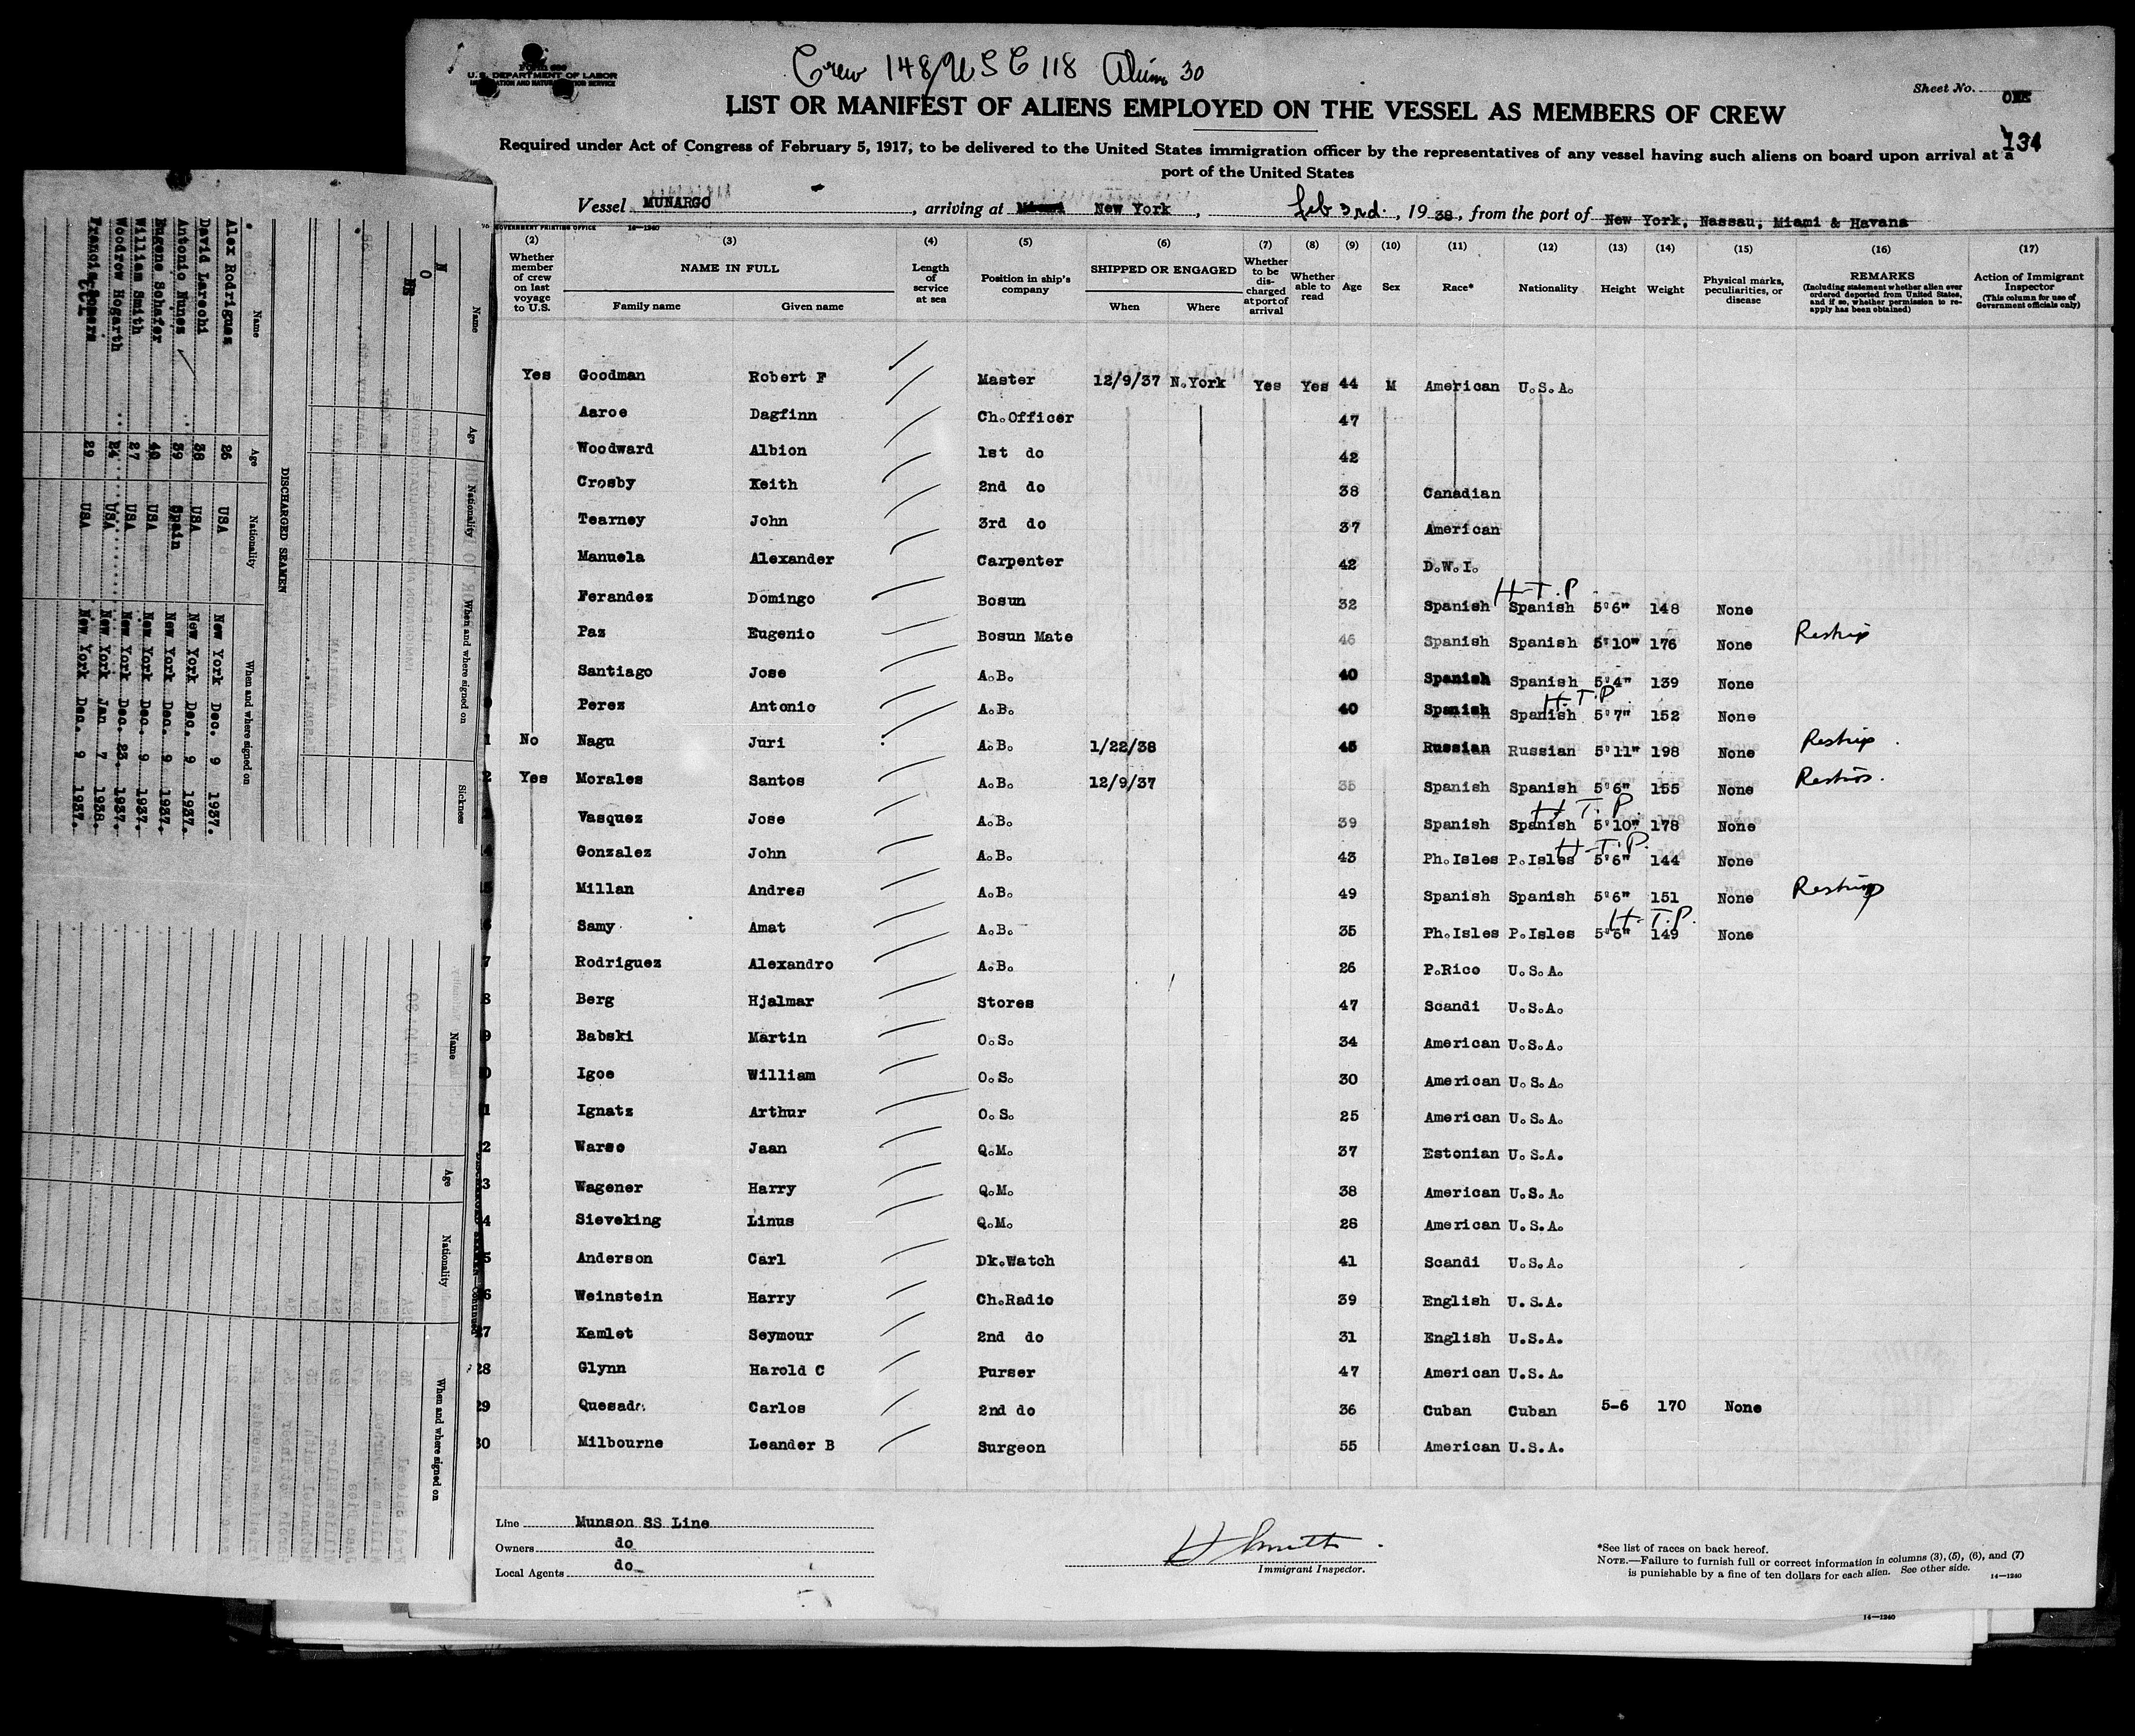 Crew 148/USC 118 Aliens 30
Form 689
U. S. DEPARTMENT OF LABOR
IMMIGRATION AND NATURALIZATION SERVICE
Sheet No. ONE
LIST OR MANIFEST OF ALIENS EMPLOYED ON THE VESSEL AS MEMBERS OF CREW
134
Required under Act of Congress of February 5, 1917, to be delivered to the United States immigration officer by the representatives of any vessel having such aliens on board upon arrival at a
port of the United States
Vessel MUNARGO, arriving at Miami New York, Feb 3rd., 1938, from the port of New York, Nassau, Miami & Havana
GOVERNMENT PRINTING OFFICE 14—1240
(2) (3) (4) (5) (6) (7) (8) (9) (10) (11) (12) (13) (14) (15) (16) (17)
Whether member of crew on last voyage to U.S. NAME IN FULL Family name Given name Length of service at sea Position in ship's company SHIPPED OR ENGAGED When Where Whether to be discharged at port of arrival Whether able to read Age Sex Race* Nationality Height Weight Physical marks, peculiarities, or disease REMARKS (Including statement whether alien ever ordered deported from United States, and if so, whether permission to reapply has been obtained) Action of Immigrant Inspector (This column for use of Government officials only)
Yes Goodman Robert F Master 12/9/37 N.York Yes Yes 44 M American U.S.A.
Aaroe Dagfinn Ch.Officer 47
Woodward Albion 1st do 42
Crosby Keith 2nd do 38 Canadian
Tearney John 3rd do 37 American
Manuela Alexander Carpenter 42 D.W.I.
H-T.P.
Ferandez Domingo Bosun 32 Spanish Spanish 5'6" 148 None
Paz Eugenio Bosun Mate 46 Spanish Spanish 5'10" 176 None Reship
Santiago Jose A.B. 40 Spanish Spanish 5'4" 139 None
H.T.P.
Perez Antonio A.B. 40 Spanish Spanish 5'7" 152 None
1 No Nagu Juri A.B. 1/22/38 45 Russian Russian 5'11" 198 None Reship
2 Yes Morales Santos A.B. 12/9/37 35 Spanish Spanish 5'6" 155 None
H.T.P.
Vasquez Jose A.B. 39 Spanish Spanish 5'10" 178 None
H-T.P.
4 Gonzalez John A.B. 43 Ph.Isles P.Isles 5'6" 144 None
5 Millan Andres A.B. 49 Spanish Spanish 5'6" 151 None Reship
H-T.P.
6 Samy Amat A.B. 35 Ph.Isles P.Isles 5'6" 149 None
7 Rodriguez Alexandro A.B. 26 P.Rico U.S.A.
8 Berg Hjalmar Stores 47 Scandi U.S.A.
9 Babski Martin O.S. 34 American U.S.A.
0 Igoe William O.S. 30 American U.S.A.
1 Ignatz Arthur O.S. 25 American U.S.A.
2 Warse Jaan Q.M. 37 Estonian U.S.A.
3 Wagener Harry Q.M. 38 American U.S.A.
4 Sieveking Linus Q.M. 28 American U.S.A.
5 Anderson Carl Dk.Watch 41 Scandi U.S.A.
6 Weinstein Harry Ch.Radio 39 English U.S.A.
27 Kamlet Seymour 2nd do 31 English U.S.A.
28 Glynn Harold C Purser 47 American U.S.A.
29 Quesada Carlos 2nd do 36 Cuban Cuban 5-6 170 None
30 Milbourne Leander B Surgeon 55 American U.S.A.
Line Munson SS Line
Owners do
Local Agents do
H Smith
Immigrant Inspector.
*See list of races on back hereof.
NOTE.—Failure to furnish full or correct information in columns (3), (5), (6), and (7)
is punishable by a fine of ten dollars for each alien. See other side. 14—1240
14—1240
Name Age Nationality When and where signed on Sickness
NONE
DISCHARGED SEAMEN
Name Age Nationality When and where signed on
Alex Rodrigues 26 USA New York Dec. 9 1937.
David Larechi 38 USA New York Dec. 9 1937.
Antonio Nunes 39 Spain New York Dec. 9 1937.
Eugene Schafer 40 USA New York Dec. 9 1937.
William Smith 27 USA New York Dec. 23. 1937.
Woodrow Hogarth 24 USA New York Jan 7 1938.
Francis Somers 29 USA New York Dec. 9 1937.
Name Age Nationality When and where signed on